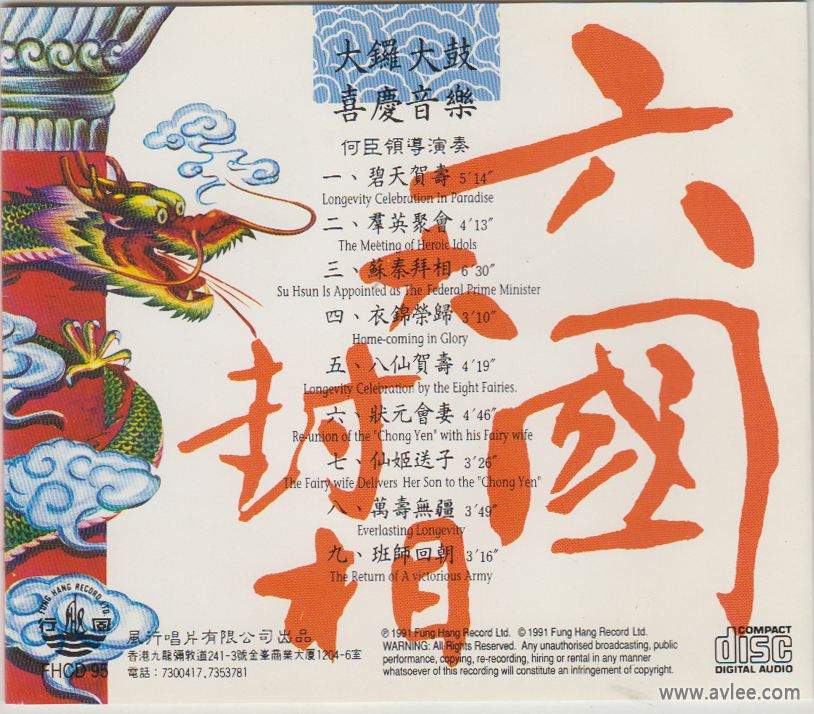 大鑼大鼓
喜慶音樂
何臣領導演奏
一、碧天賀壽 5′14″
Longevity Celebration in Paradise
二、羣英聚會 4′13″
The Meeting of Heroic Idols
三、蘇秦拜相 6′30″
Su Hsun Is Appointed as The Federal Prime Minister
四、衣錦榮歸 3′10″
Home-coming in Glory
五、八仙賀壽 4′19″
Longevity Celebration by the Eight Fairies.
六、狀元會妻 4′46″
Re-union of the "Chong Yen" with his Fairy wife
七、仙姬送子 3′26″
The Fairy wife Delivers Her Son to the "Chong Yen"
八、萬壽無疆 3′49″
Everlasting Longevity
九、班師回朝 3′16″
The Return of A victorious Army
六國
大封相
FUNG HANG RECORD LTD.
FHCD 95
風行唱片有限公司出品
香港九龍彌敦道241-3號金峯商業大厦1204-6室
電話：7300417,7353781
℗ 1991 Fung Hang Record Ltd. © 1991 Fung Hang Record Ltd.
WARNING: All Rights Reserved. Any unauthorised broadcasting, public
performance, copying, re-recording, hiring or rental in any manner
whatsoever of this recording will constitute an infringement of copyright.
COMPACT
disc
DIGITAL AUDIO
www.avlee.com